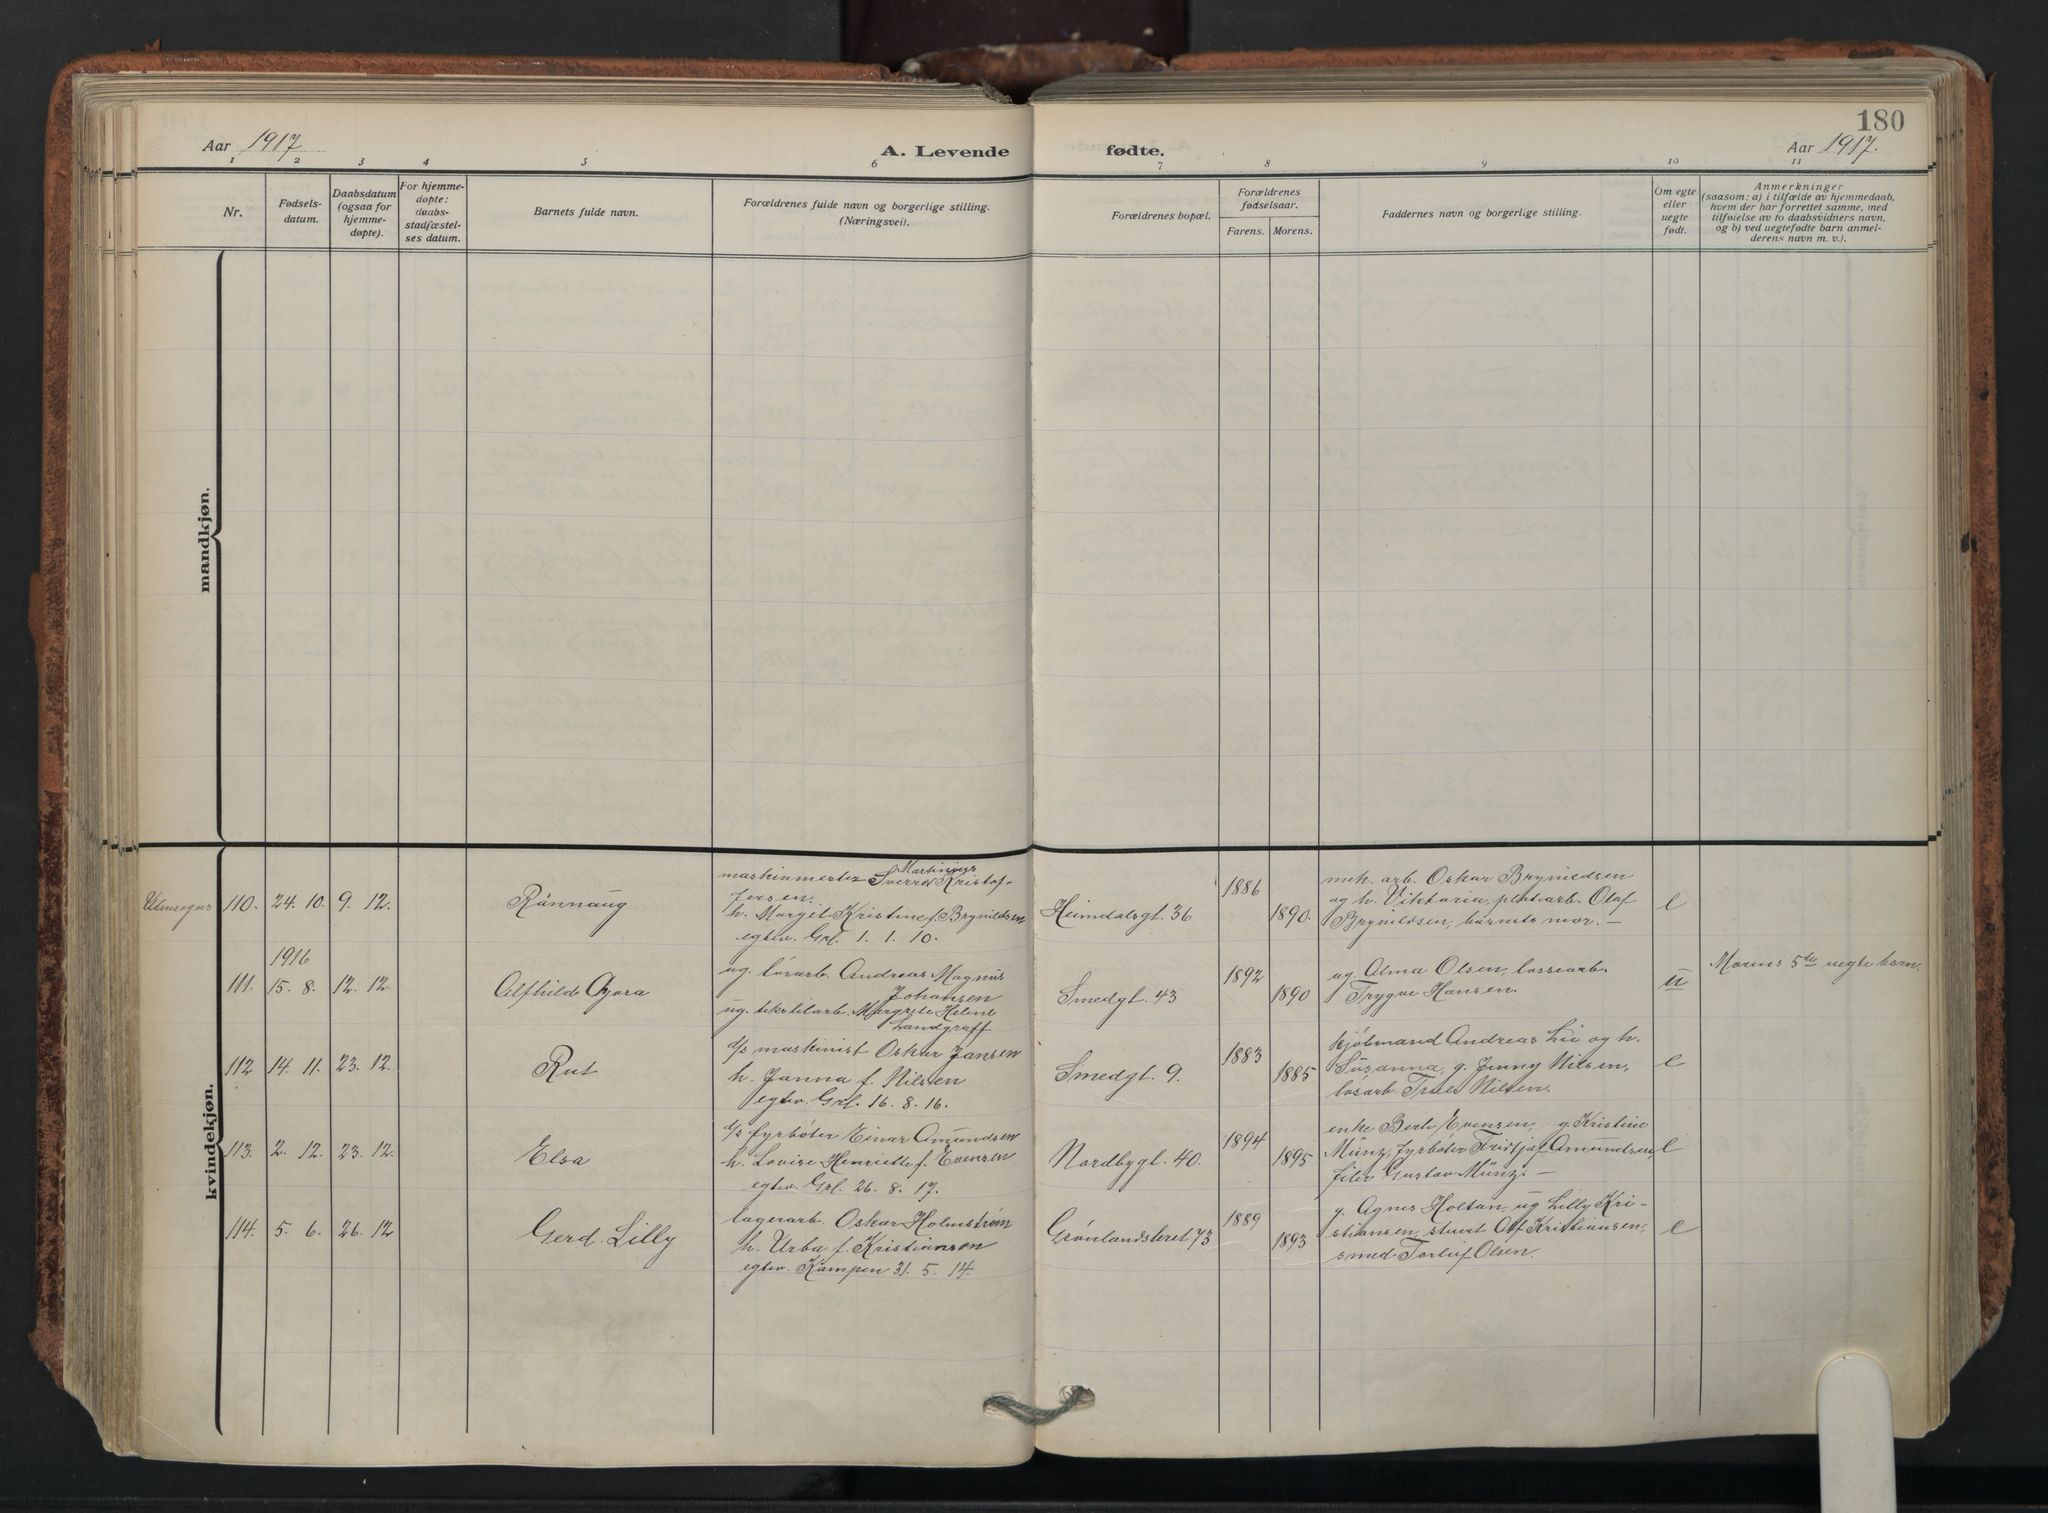 180
Aar 1917
A. Levende fødte.
Aar 1917.
1 2 3 4 5 6 7 8 9 10 11
Nr.
Fødsels-
datum.
Daabsdatum
(ogsaa for
hjemme-
døpte).
For hjemme-
døpte:
daabs-
stadfæstel-
ses datum.
Barnets fulde navn.
Forældrenes fulde navn og borgerlige stilling.
(Næringsvei).
Forældrenes bopæl.
Forældrenes
fødselsaar.
Farens. Morens.
Faddernes navn og borgerlige stilling.
Om egte
eller
uegte
født.
Anmerkninger
(saasom: a) i tilfælde av hjemmedaab,
hvem der har forrettet samme, med
tilføielse av to daabsvidners navn,
og b) ved uegtefødte barn anmel-
derens navn m. v.).
mandkjøn.
kvindekjøn.
Utensogns
110. 24. 10. 9. 12.
Rønnaug
Martinius
maskinmester Sverre Kristof-
fersen
h. Margit Kristine f. Brynildsen
egtev. Grl. 1. 1. 10.
Heimdalsgt. 36
1886
1890.
mek. arb. Oskar Brynildsen
og h. Viktoria, platearb. Olaf
Brynildsen, barnets mor. —
e
1916
111. 15. 8. 12. 12.
Alfhilde Gyora
ug. løsarb. Andreas Magnus
Johansen
ug. tekstilarb. Margrete Helene
Landgraff
Smedgt. 43
1892
1890
ug. Alma Olsen, lossearb.
Trygve Hansen.
u
Morens 5te uegte barn.
112 14. 11. 23. 12.
Rut
d/s maskinist Oskar Jansen
h. Janna f. Nilsen
egtev. Grl. 16. 8. 16.
Smedgt. 9.
1883
1885
kjøbmand Andreas Lie og h.
Susanna, g. Jenny Nilsen,
løsarb. Truls Nilsen.
e
113. 2. 12. 23. 12.
Elsa
d/s fyrbøter Einar Amundsen
h. Lovise Henriette f. Evensen
egtev. Grl. 26. 8. 17.
Nordbygt. 40.
1894
1895
enke Berte Evensen, g. Kristine
Münz, fyrbøter Fridtjof Amundsen,
filer Gustav Münz. —
e
114. 5. 6. 26. 12
Gerd Lilly
lagerarb. Oskar Holmstrøm
h. Urba f. Kristiansen
egtev. Kampen 31. 5. 14.
Grønlandsleret 73
1889
1893
g. Agnes Holtan, ug Lilly Kri-
stiansen, stuert Olf Kristiansen,
smed Torluf Olsen.
e